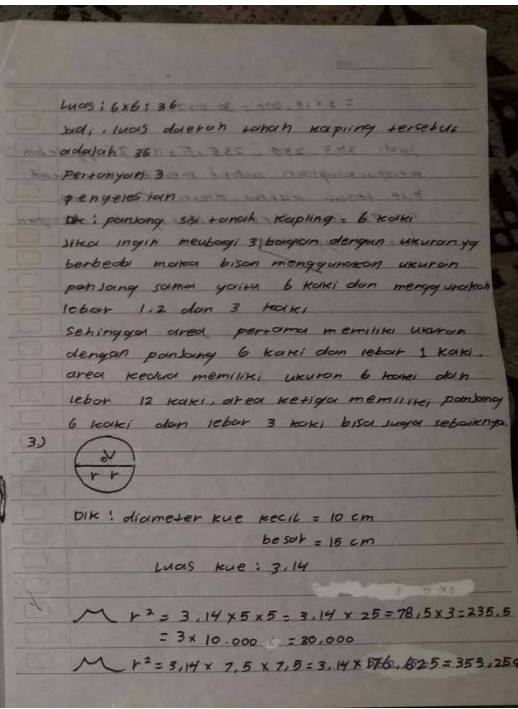 Luas : 6x6 : 36
Jadi, luas daerah tanah kapling tersebut
adalah 36
Pertanyan 3
penyelesian
Dik : panjang sisi tanah kapling = 6 kaki
Jika ingin meubagi 3 bagian dengan ukuran yg
berbeda maka bisan menggunakan ukuran
panjang sama yaitu 6 kaki dan menggunakah
lebar 1,2 dan 3 kaki,
Sehingga area pertama memiliki ukuran
dengan panjang 6 kaki dan lebar 1 kaki.
area kedua memiliki ukuran 6 kaki dan
lebar 12 kaki, area ketiga memiliki panjang
6 kaki dan lebar 3 kaki bisa juga sebaiknya.
3.)
d
r r
DIK : diameter kue kecil = 10 cm
besar = 15 cm
Luas kue : 3,14
r² = 3,14 x 5 x 5 = 3,14 x 25 = 78,5 x 3 = 235.5
= 3 x 10.000 = 30.000
r² = 3,14 x 7,5 x 7,5 = 3,14 x